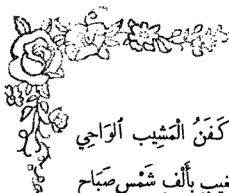 كَفَنُ الْمَشِيبِ ٱلْوَاحِي
غيبِ بِأَلْفِ شَمْسِ صَبَاحِ